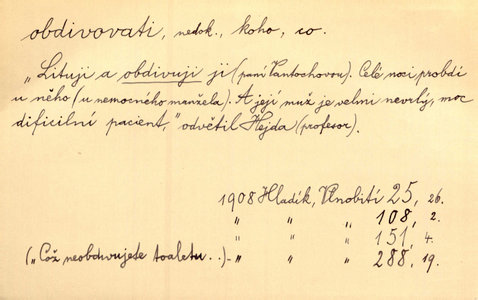 obdivovati, nedok., koho, co.
„Lituji a obdivuji ji (paní Vantochovou). Celé noci probdí
u něho (u nemocného manžela). A její muž je velmi nevrlý, moc
dificilní pacient,“ odvětil Hejda (profesor).
1908 Hladík, Vlnobití 25, 26.
„ „ „ 108, 2.
„ „ „ 151, 4.
(„Což neobdivujete toaletu..)- „ „ „ 288, 19.